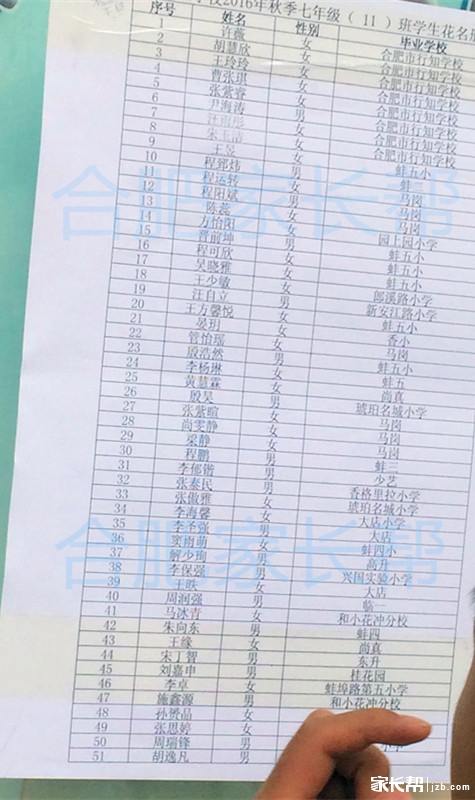 校2016年秋季七年级（11）班学生花名册
序号 姓名 性别 毕业学校
1 许薇 女 合肥市行知学校
2 胡慧欣 女 合肥市行知学校
3 王玲玲 女 合肥市行知学校
4 曹张琪 女 合肥市行知学校
5 张紫睿 女 合肥市行知学校
6 尹海涛 男 合肥市行知学校
7 汪雨彤 女 合肥市行知学校
8 朱玉洁 女 合肥市行知学校
9 王昱 女 蚌五小
10 程郅炜 男 蚌三
11 程运转 女 马岗
12 程阳斌 男 马岗
13 陈蕊 女 马岗
14 方怡阳 女 园上园小学
15 晋前坤 男 蚌五小
16 程可欣 女 蚌五小
17 吴晓雅 女 蚌五小
18 王少敏 女 郎溪路小学
19 汪自立 男 新安江路小学
20 王方馨悦 女 蚌五小
21 晏玥 女 香小
22 管怡瑶 女 马岗
23 殷浩然 男 蚌五小
24 李杨琳 女 蚌五
25 黄慧霖 女 尚真
26 殷昊 男 琥珀名城小学
27 张紫暄 女 马岗
28 尚雯静 女 马岗
29 梁静 女 马岗
30 程鹏 男 蚌三
31 李郁锴 男 少艺
32 张泰民 男 香格里拉小学
33 张傲雅 女 琥珀名城小学
34 李海馨 女 大店小学
35 李圣强 男 大店
36 窦雨萌 女 蚌四小
37 解少珣 男 高升
38 李保强 男 兴国实验小学
39 王昳 女 大店
40 周润强 男 临一
41 马冰青 女 和小花冲分校
42 朱向东 男 蚌四
43 王缘 女 尚真
44 宋丁智 男 东升
45 刘嘉申 男 桂花园
46 李卓 女 蚌埠路第五小学
47 施鑫源 男 和小花冲分校
48 孙赟晶 女
49 张思婷 女
50 周瑞锋 男
51 胡逸凡 男
合肥家长帮
合肥家长帮
家长帮 jzb.com